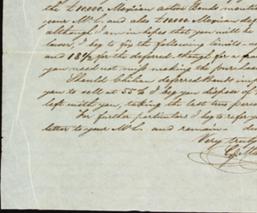 the £10000 Mexican active Bonds
your Mr L. and also £10000 Mexican def
although I am in hopes that you will be
lower, I beg to fix the following limits
and 18½ for the deferred, though for a fra
you need not miss making the purchase
Should Chilian deferred Bonds imp
you to sell at 55% I beg you dispose of
left with you, taking the last two
For further particulars I beg to refer you
letter to your Mr L. and remain
Very truly